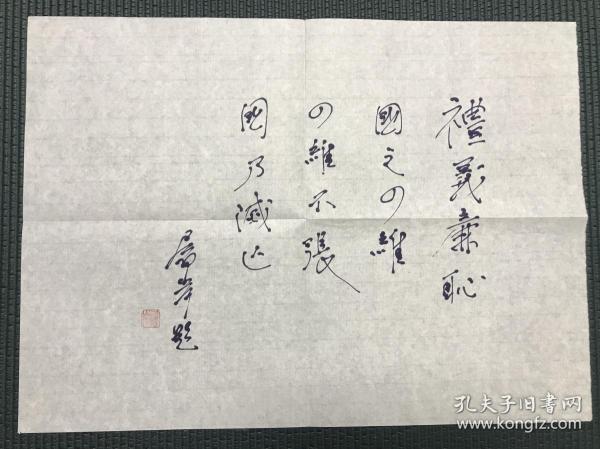 禮義廉恥
國之四維
四維不張
國乃滅亡
屠岸題
孔夫子旧书网
www.kongfz.com